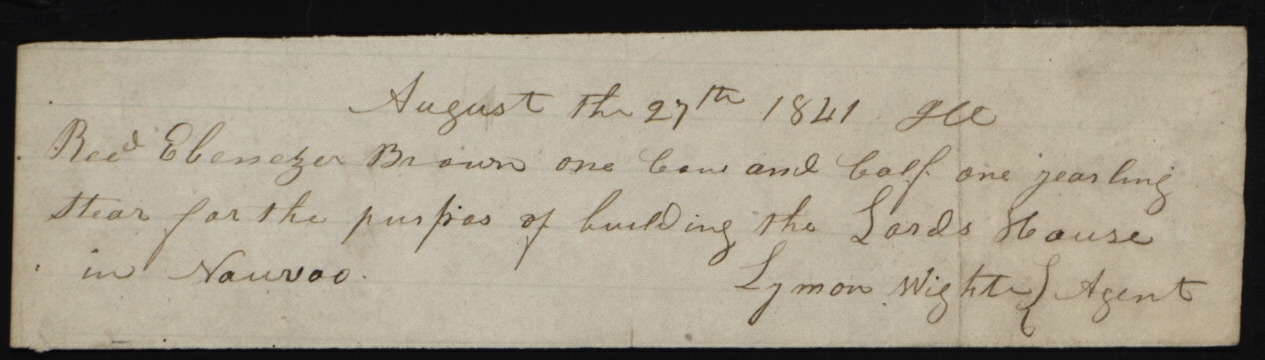 August the 27th 1841 Ill
Recd Ebenezer Brown one Cow and Calf one yearling
stear for the purpos of building the Lords House
in Nauvoo.
Lyman Wight } Agent